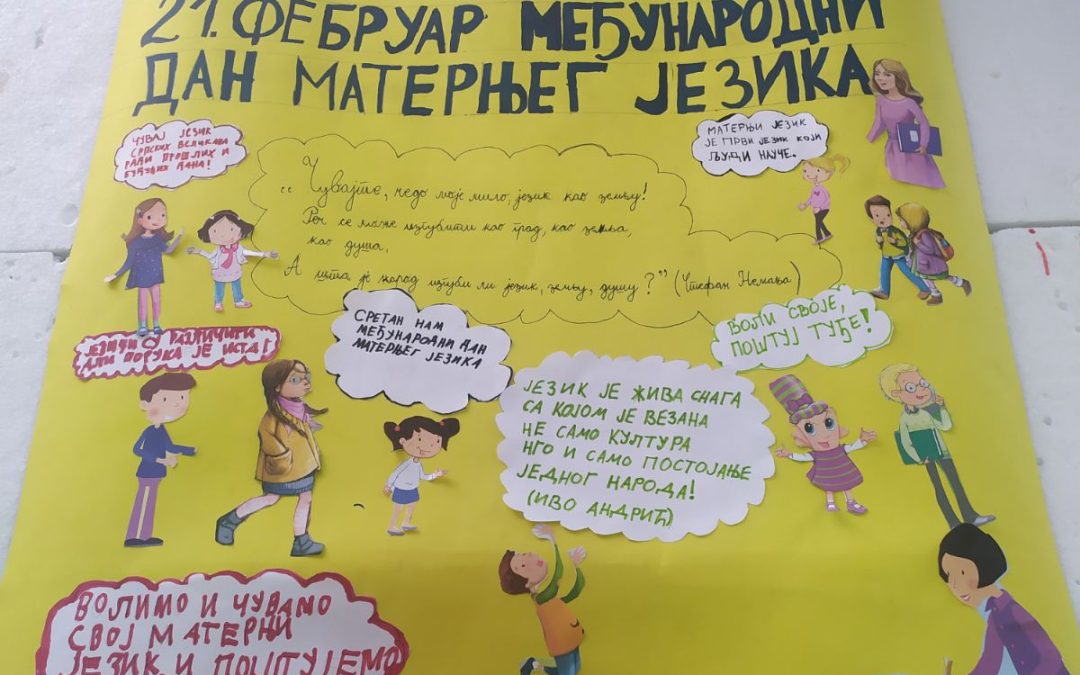 21. ФЕБРУАР МЕЂУНАРОДНИ
ДАН МАТЕРЊЕГ ЈЕЗИКА
ЧУВАЈ ЈЕЗИК
СРПСКИХ ВЕЛИКАНА
РАДИ ПРОШЛИХ И
БУДУЋИХ ДАНА!
МАТЕРЊИ ЈЕЗИК
ЈЕ ПРВИ ЈЕЗИК КОЈИ
ЉУДИ НАУЧЕ.
„Чувајте, чедо моје мило, језик као земљу!
Реч се може изгубити као град, као земља,
као душа.
А шта је народ изгуби ли језик, земљу, душу?” (Стефан Немања)
ЈЕЗИЦИ СУ РАЗЛИЧИТИ
АЛИ ПОРУКА ЈЕ ИСТА!
СРЕТАН НАМ
МЕЂУНАРОДНИ ДАН
МАТЕРЊЕГ ЈЕЗИКА
ВОЛИ СВОЈЕ,
ПОШТУЈ ТУЂЕ!
ЈЕЗИК ЈЕ ЖИВА СНАГА
СА КОЈОМ ЈЕ ВЕЗАНА
НЕ САМО КУЛТУРА
НГО И САМО ПОСТОЈАЊЕ
ЈЕДНОГ НАРОДА!
(ИВО АНДРИЋ)
ВОЛИМО И ЧУВАМО
СВОЈ МАТЕРЊИ
ЈЕЗИК И ПОШТУЈЕМО